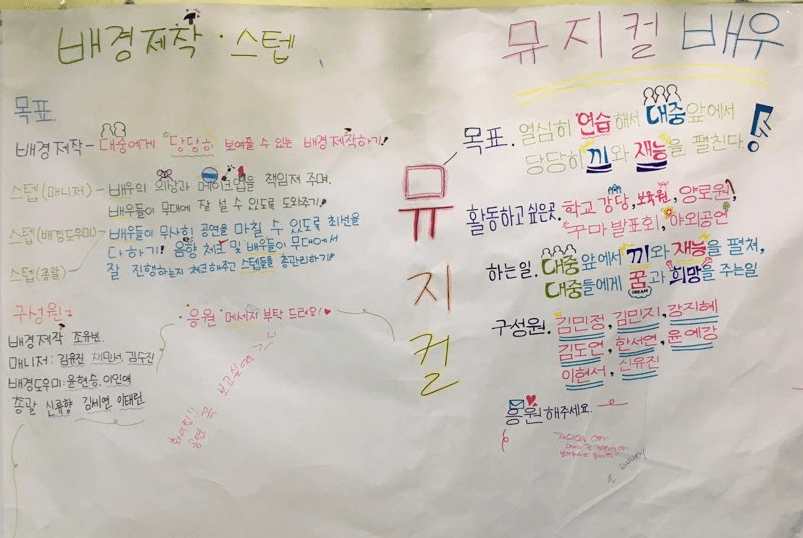 배경제작 · 스텝
목표.
배경제작 - 대중에게 당당히 보여줄 수 있는 배경제작하기!
스텝(매니저) - 배우의 의상과 메이크업을 책임져 주며,
배우들이 무대에 잘 설 수 있도록 도와주기!
스텝(배경도우미) - 배우들이 무사히 공연을 마칠 수 있도록 최선을
다하기! 음향 체크 및 배우들이 무대에서
스텝(총괄) 잘 진행하는지 체크해주고 스텝들을 총관리하기!
구성원
배경제작 조유빈
매니저: 김유진 재민서, 김수진
배경도우미: 윤현승, 이인애
총괄 신류향 김세연 이태린
응원 메세지 부탁 드려요!
화이팅!!
공연 꼭 보고싶어요
뮤지컬
뮤지컬 배우
목표. 열심히 연습해서 대중앞에서
당당히 끼와 재능을 펼친다!
활동하고 싶은곳. 학교 강당, 보육원, 양로원,
꾸마 발표회, 야외공연
하는일. 대중 앞에서 끼와 재능을 펼쳐,
대중들에게 꿈과 희망을 주는일
DREAM
구성원. 김민정, 김민지, 강지혜
김도연, 한서연, 윤예강
이현서, 신유진
응원해주세요.